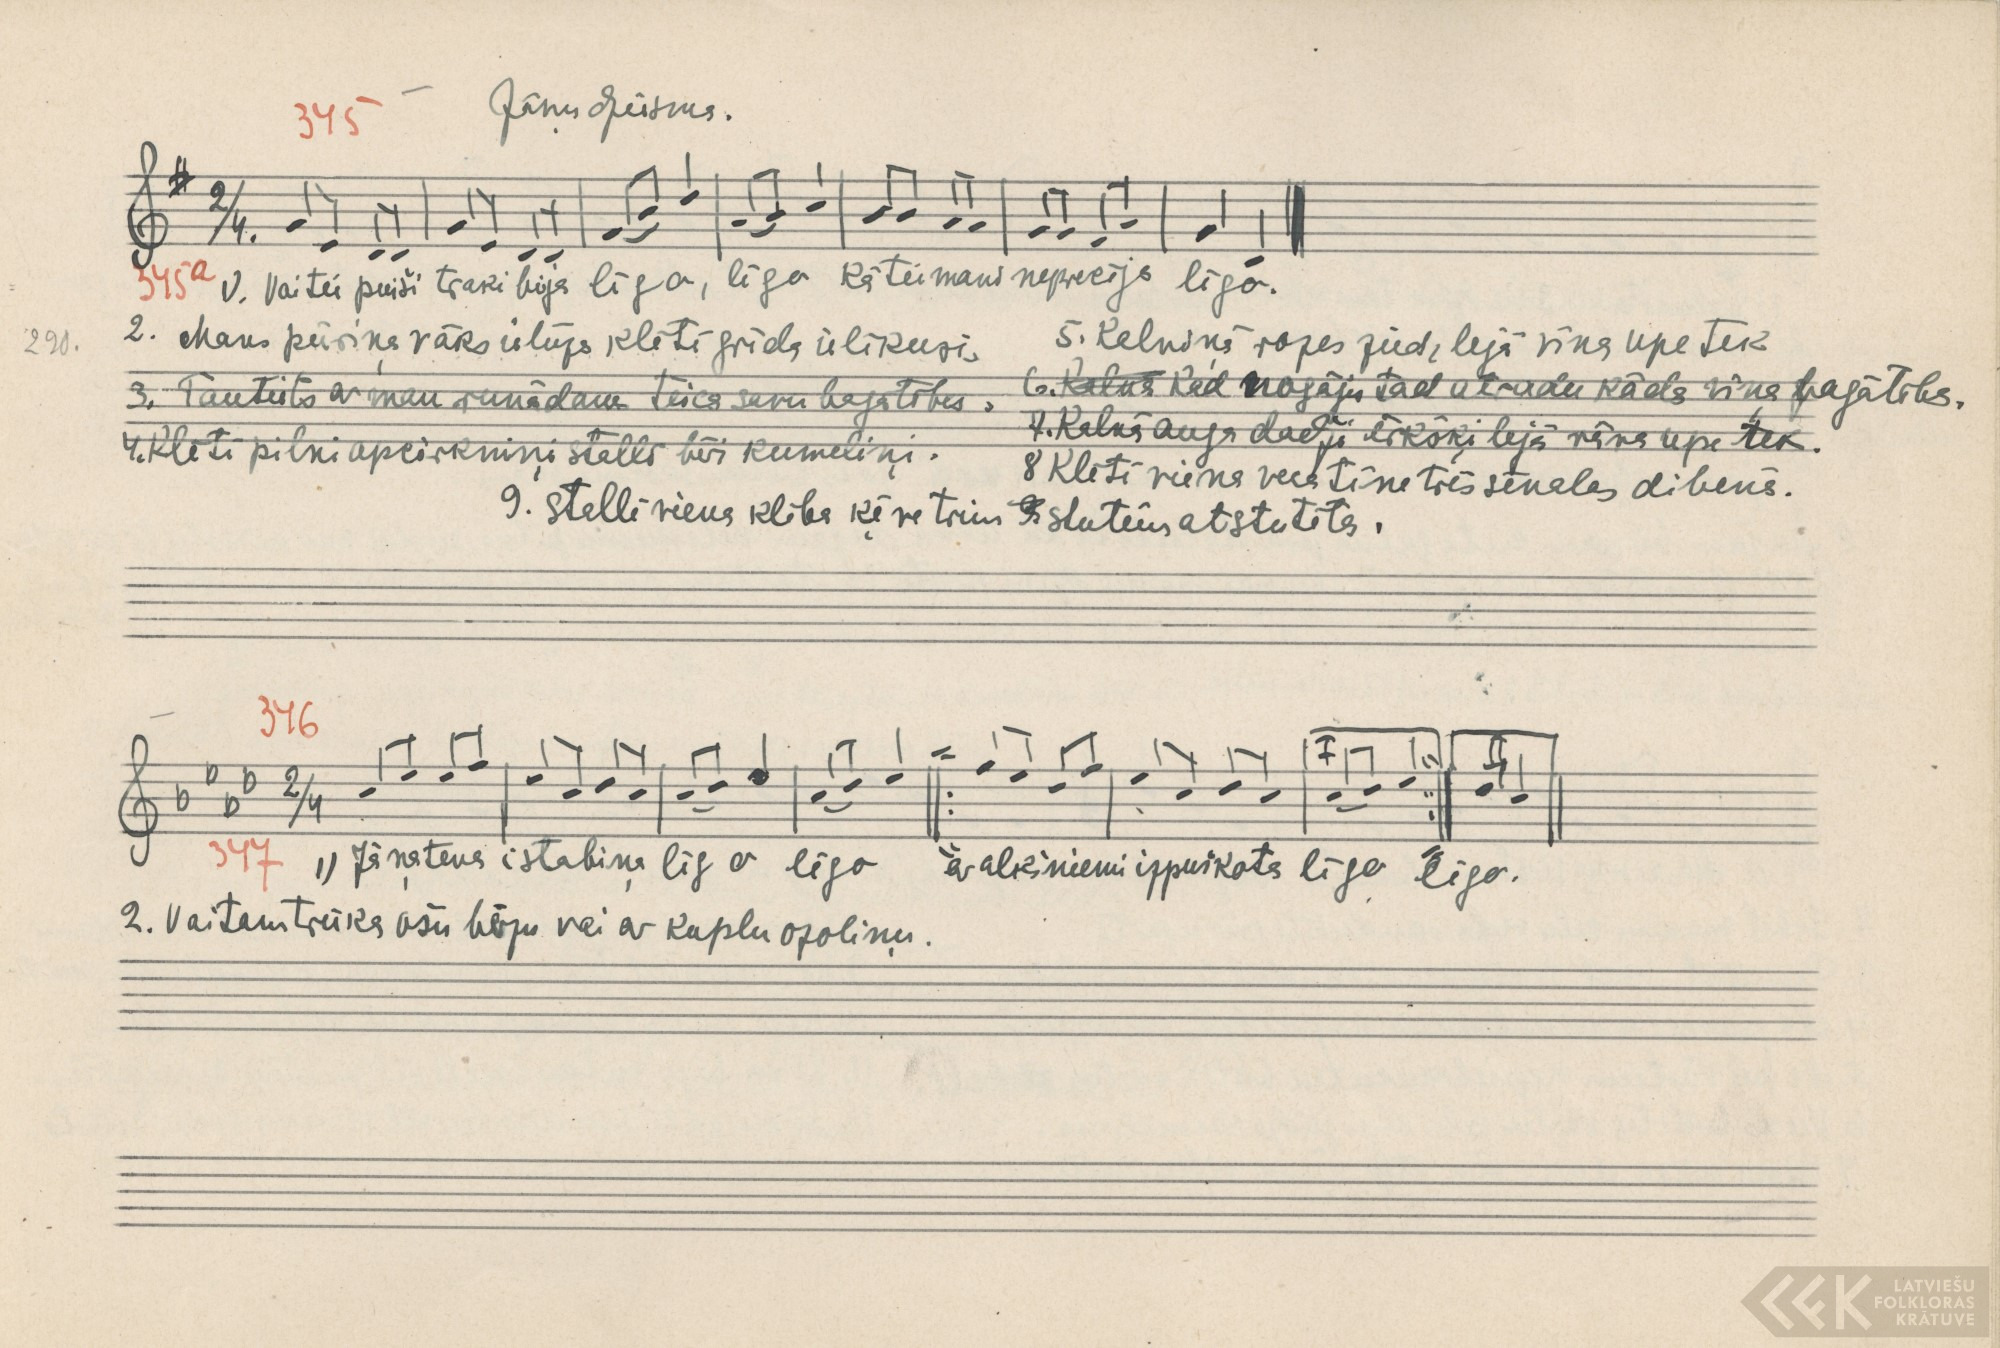 345 Jāņu dziesma.
2/4.
345a 1. Vai tei puiši traki bija līgo, līgo kā tei mani neprecīja līgo.
290.
2. Mans pūriņa vāks ielūza klētī grīda ielikusi.
3. Tautiets ar man runādams teica savu bagātību.
4. Klētī pilni apcirkniņi stallī bēri kumeliņi.
5. Kalniņā rozes zied, lejā vīna upe tek
6. Kalnā Kad nogāju tad atradu kāda viņa bagātība.
7. Kalnā auga dadži ērkšķi lejā vāva upe tek.
8 Klētī viena veca tīne trīs sēnalas dibenā.
9. Stallī viena kliba ķēve trim stutēm atstutēta.
346
2/4 I II
347 1) Jāņa tēva istabiņa līgo līgo ar alkšniemi izpuškota līgo līgo.
2. Vai tam trūka ošu bērzu vai ar kuplu ozoliņu.
LATVIEŠU
FOLKLORAS
KRĀTUVE